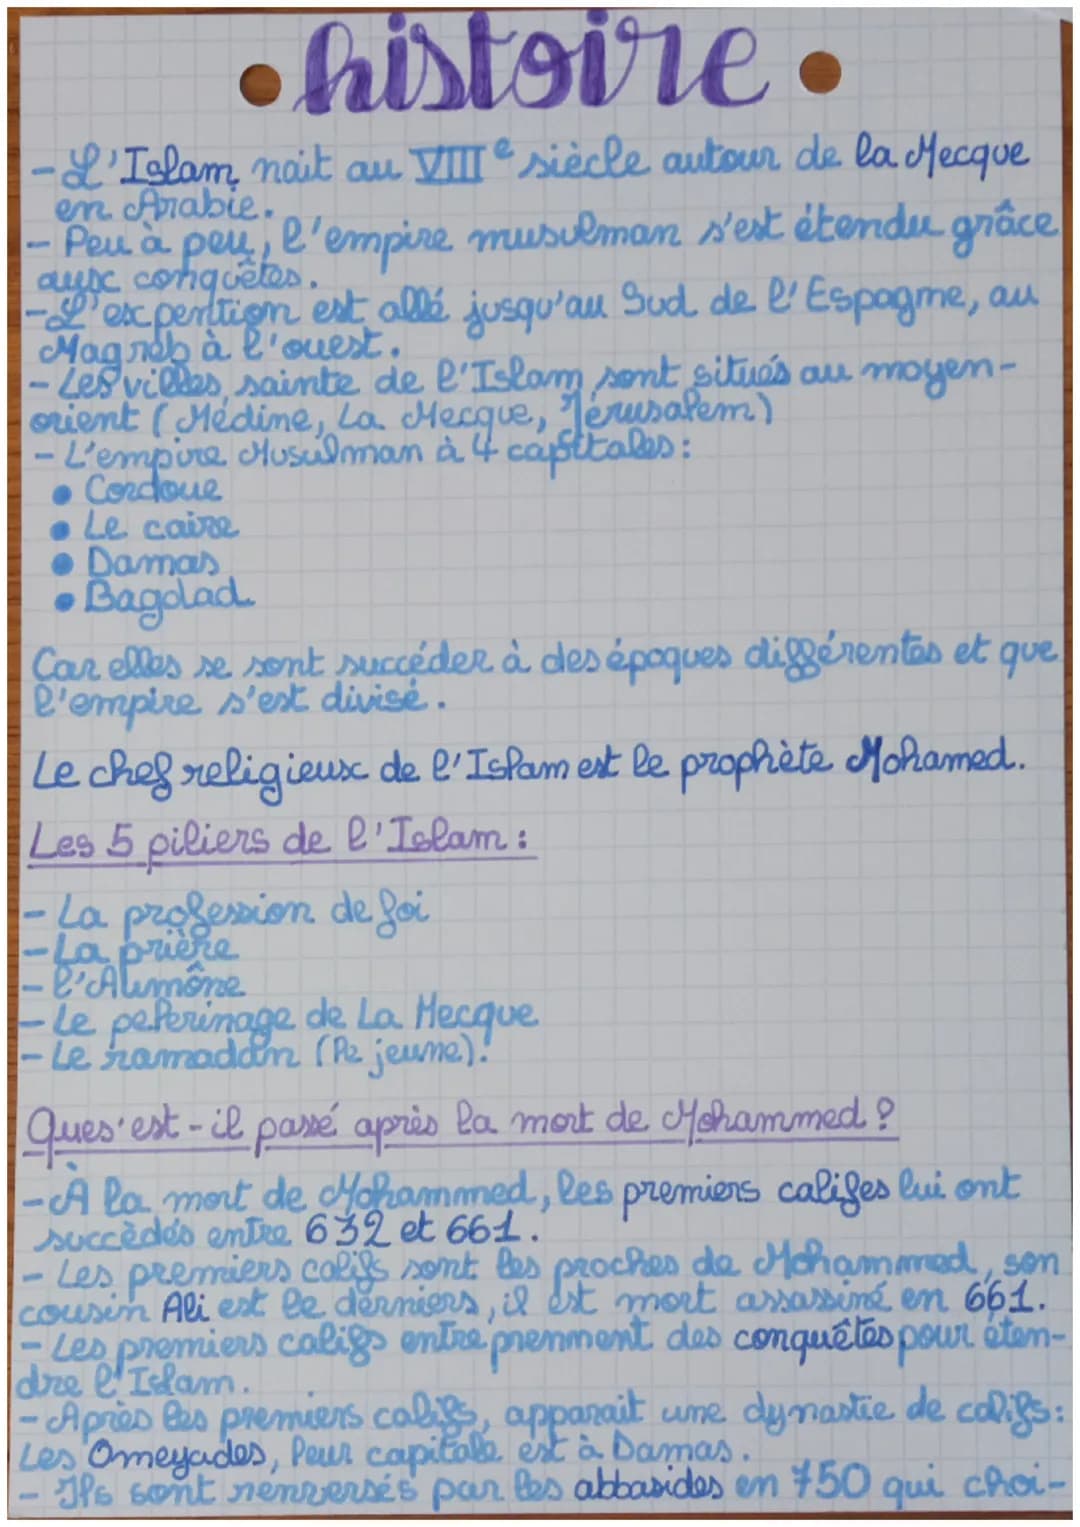 • histoire •
- L'Islam nait au VIIIe siècle autour de la Mecque
en Arabie.
- Peu à peu, l'empire musulman s'est étendu grâce
aux conquêtes.
- L'expention est allé jusqu'au Sud de l'Espagne, au
Magreb à l'ouest.
- Les villes sainte de l'Islam sont situés au moyen-
orient (Médine, La Mecque, Jérusalem)
- L'empire Musulman à 4 capitales :
• Cordoue
• Le caire
• Damas
• Bagdad
Car elles se sont succéder à des époques différentes et que
l'empire s'est divisé.
Le chef religieux de l'Islam est le prophète Mohamed.
Les 5 piliers de l'Islam :
- La profession de foi
- La prière
- l'Aumône
- Le pelerinage de La Mecque
- Le ramaddan (le jeune).
Ques'est-il passé après la mort de Mohammed ?
- À la mort de Mohammed, les premiers califes lui ont
succèdés entre 632 et 661.
- Les premiers califs sont les proches de Mohammed, son
cousin Ali est le derniers, il est mort assassiné en 661.
- Les premiers califs entreprenment des conquêtes pour éten-
dre l'Islam.
- Après les premiers califs, apparait une dynastie de califs :
Les Omeyades, leur capitale est à Damas.
- Ils sont renversés par les abbasides en 750 qui choi-